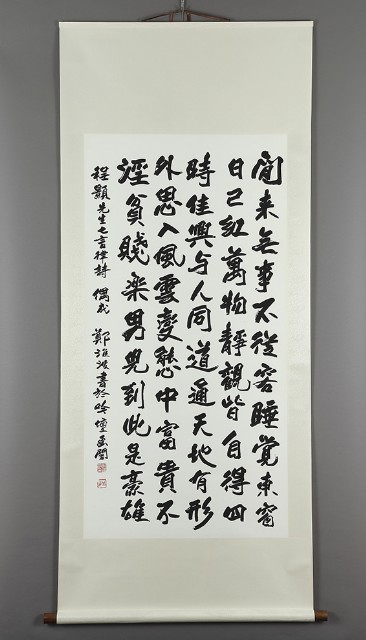 閒来無事不從容睡覺東窗
日已紅萬物靜觀皆自得四
時佳興与人同道通天地有形
外思入風雲變態中富貴不
淫貧賤樂男兒到此是豪雄
程顥先生七言律詩 偶成 鄭書於